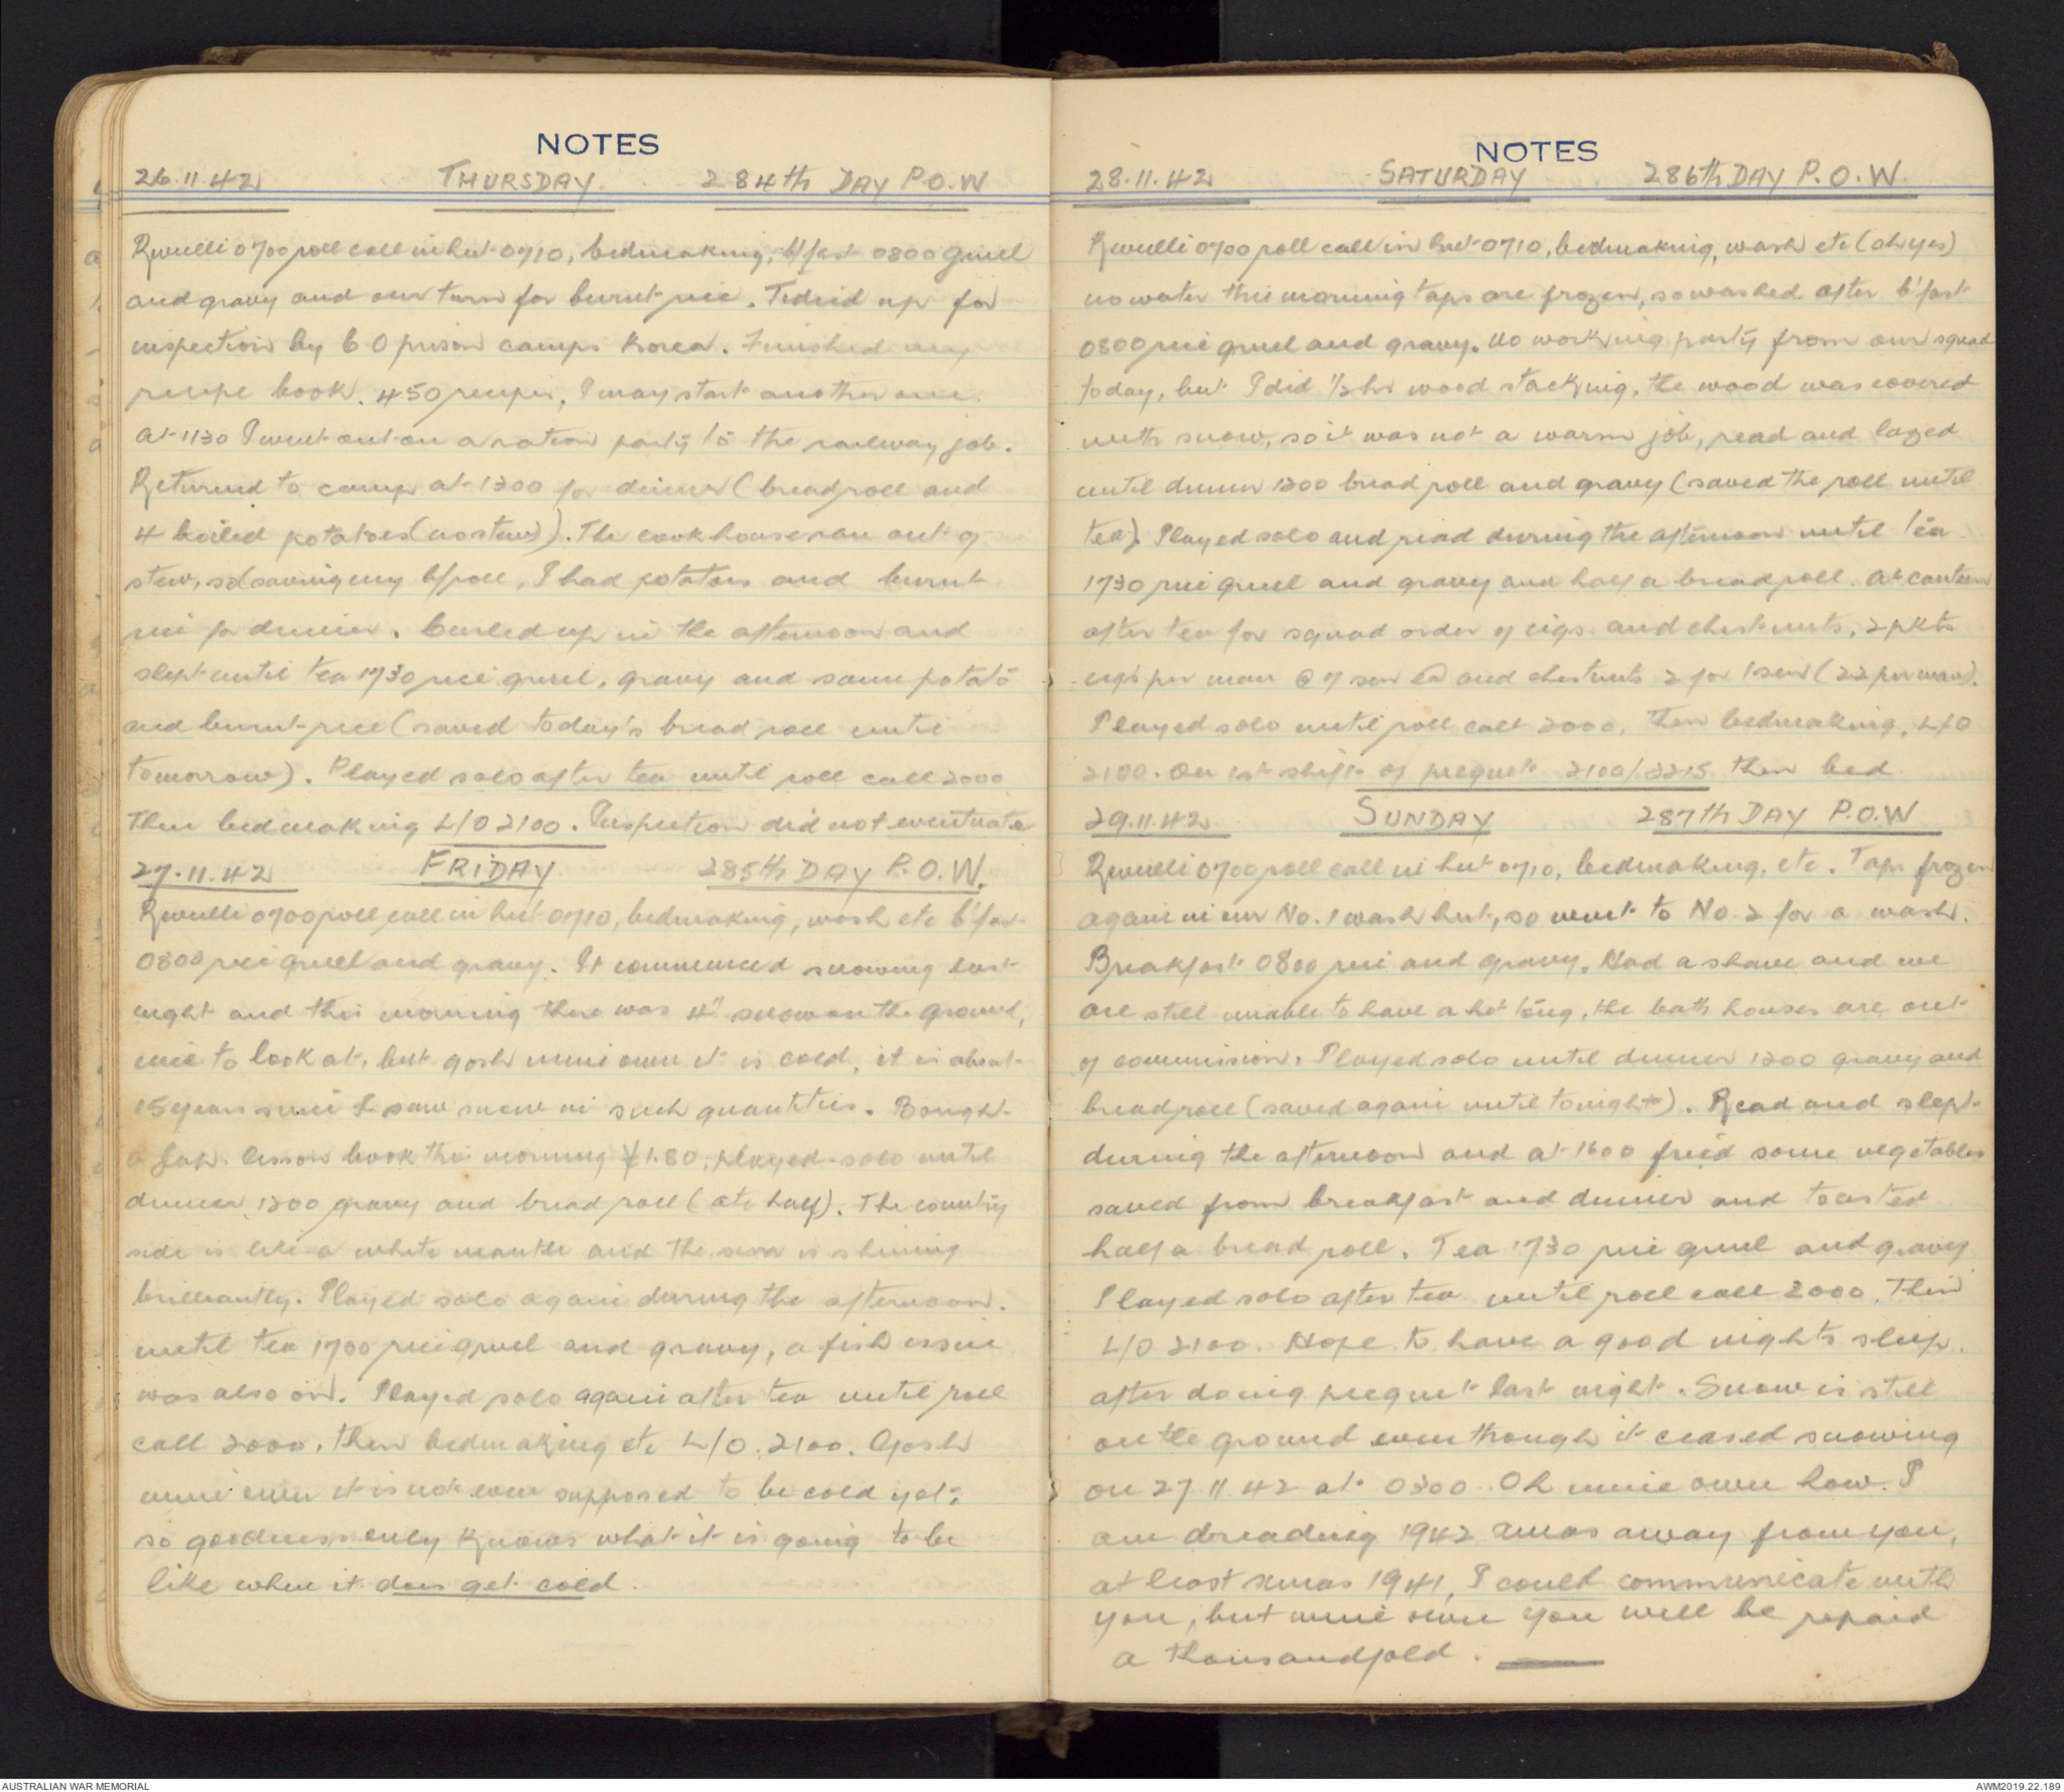 NOTES
26.11.42 THURSDAY. 284th DAY P.O.W
Rveulli 0700 roll call in hut 0710, bedmaking, b/fast 0800 gruel
and gravy and our turn for burnt rice. Tidied up for
inspection by C O prison camps Korea. Finished my
recipe book. 450 recipes, I may start another one.
At 1130 I went out on a ration party to the railway job.
Returned to camp at 1300 for dinner (bread roll and
4 boiled potatoes (no stew)). The cookhouse ran out of
stew, so saving my b/roll, I had potatoes and burnt
rice for dinner. Curled up in the afternoon and
slept until tea 1730 rice gruel, gravy and some potato
and burnt rice (saved today's bread roll until
tomorrow). Played solo after tea until roll call 2000
Then bedmaking L/O 2100. Inspection did not eventuate
27.11.42 FRIDAY 285th DAY P.O.W.
Rveulli 0700 roll call in hut 0710, bedmaking, wash etc b'fast
0800 rice gruel and gravy. It commenced snowing last
night and this morning there was 4" snow on the ground,
nice to look at, but gosh mine own it is cold, it is about
15 years since I saw snow in such quantities. Bought
a Jap. lesson book this morning ¥1.80, played solo until
dinner 1200 gravy and bread roll (ate half). The country
side is like a white mantle and the sun is shining
brilliantly. Played solo again during the afternoon.
until tea 1700 rice gruel and gravy, a fish issue
was also on. Played solo again after tea until roll
call 2000, then bedmaking etc L/O. 2100. Gosh
mine own it is not even supposed to be cold yet,
so goodness only knows what it is going to be
like when it does get cold.
NOTES
28.11.42 SATURDAY 286th DAY P.O.W.
Rveulli 0700 roll call in hut 0710, bedmaking, wash etc (oh yes)
no water this morning taps are frozen, so washed after b'fast
0800 rice gruel and gravy. No working party from our squad
today, but I did ½ hr wood stacking, the wood was covered
with snow, so it was not a warm job, read and lazed
until dinner 1200 bread roll and gravy (saved the roll until
tea). Played solo and read during the afternoon until tea
1730 rice gruel and gravy and half a bread roll. At canteen
after tea for squad order of cigs. and chestnuts, 2 pkts
cigs per man @ 7 sen ea and chestnuts 2 for 1 sen (22 per man).
Played solo until roll call 2000, then bedmaking, L/O
2100. On 1st shift of picquet 2100/2215 then bed
29.11.42 SUNDAY 287th DAY P.O.W
Rveulli 0700 roll call in hut 0710, bedmaking, etc. Taps frozen
again in our No. 1 wash hut, so went to No. 2 for a wash.
Breakfast 0800 rice and gravy. Had a shave and we
are still unable to have a hot tong, the bath houses are out
of commission. Played solo until dinner 1200 gravy and
bread roll (saved again until tonight). Read and slept
during the afternoon and at 1600 fried some vegetables
saved from breakfast and dinner and toasted
half a bread roll. Tea 1730 rice gruel and gravy
Played solo after tea until roll call 2000. Then
L/O 2100. Hope to have a good nights sleep.
after doing picquet last night. Snow is still
on the ground even though it ceased snowing
on 27 11 42 at 0300. Oh mine own how I
am dreading 1942 xmas away from you,
at least xmas 1941, I could communicate with
you, but mine own you will be repaid
a thousandfold.
AUSTRALIAN WAR MEMORIAL
AWM2019.22.189